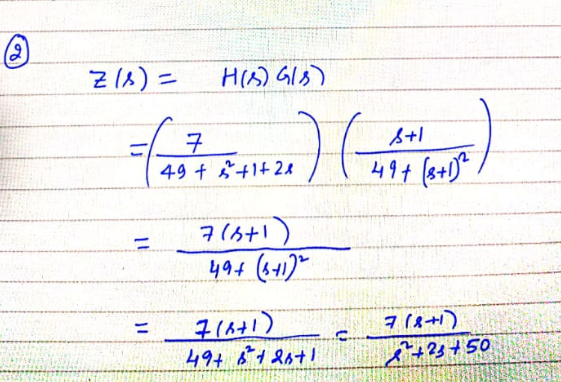 ②
Z(s) = H(s) G(s)
= (7 / (49 + s² + 1 + 2s)) ((s+1) / (49 + (s+1)²))
= 7(s+1) / (49 + (s+1)²)
= 7(s+1) / (49 + s² + 2s + 1) = 7(s+1) / (s² + 2s + 50)